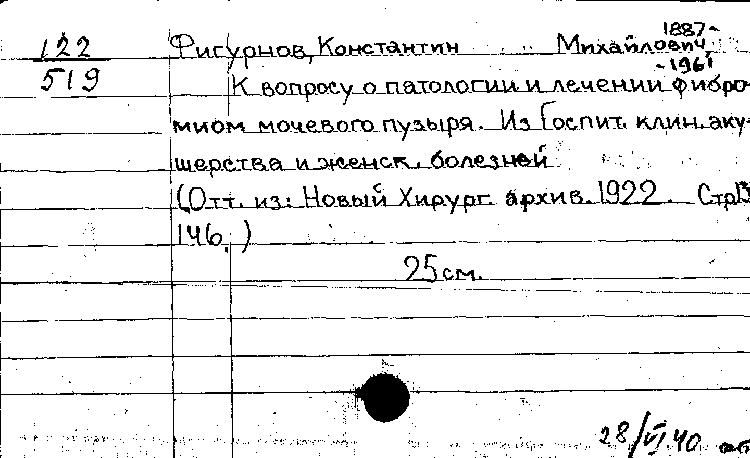 122
519
Фигурнов, Константин Михайлович, 1887-
-1961
К вопросу о патологии и лечении фибро-
миом мочевого пузыря. Из Госпит. клин. аку-
шерства и женск. болезней
(Отт. из: Новый Хирург. архив. 1922. Стр
146.)
25 см.
28/VI 40